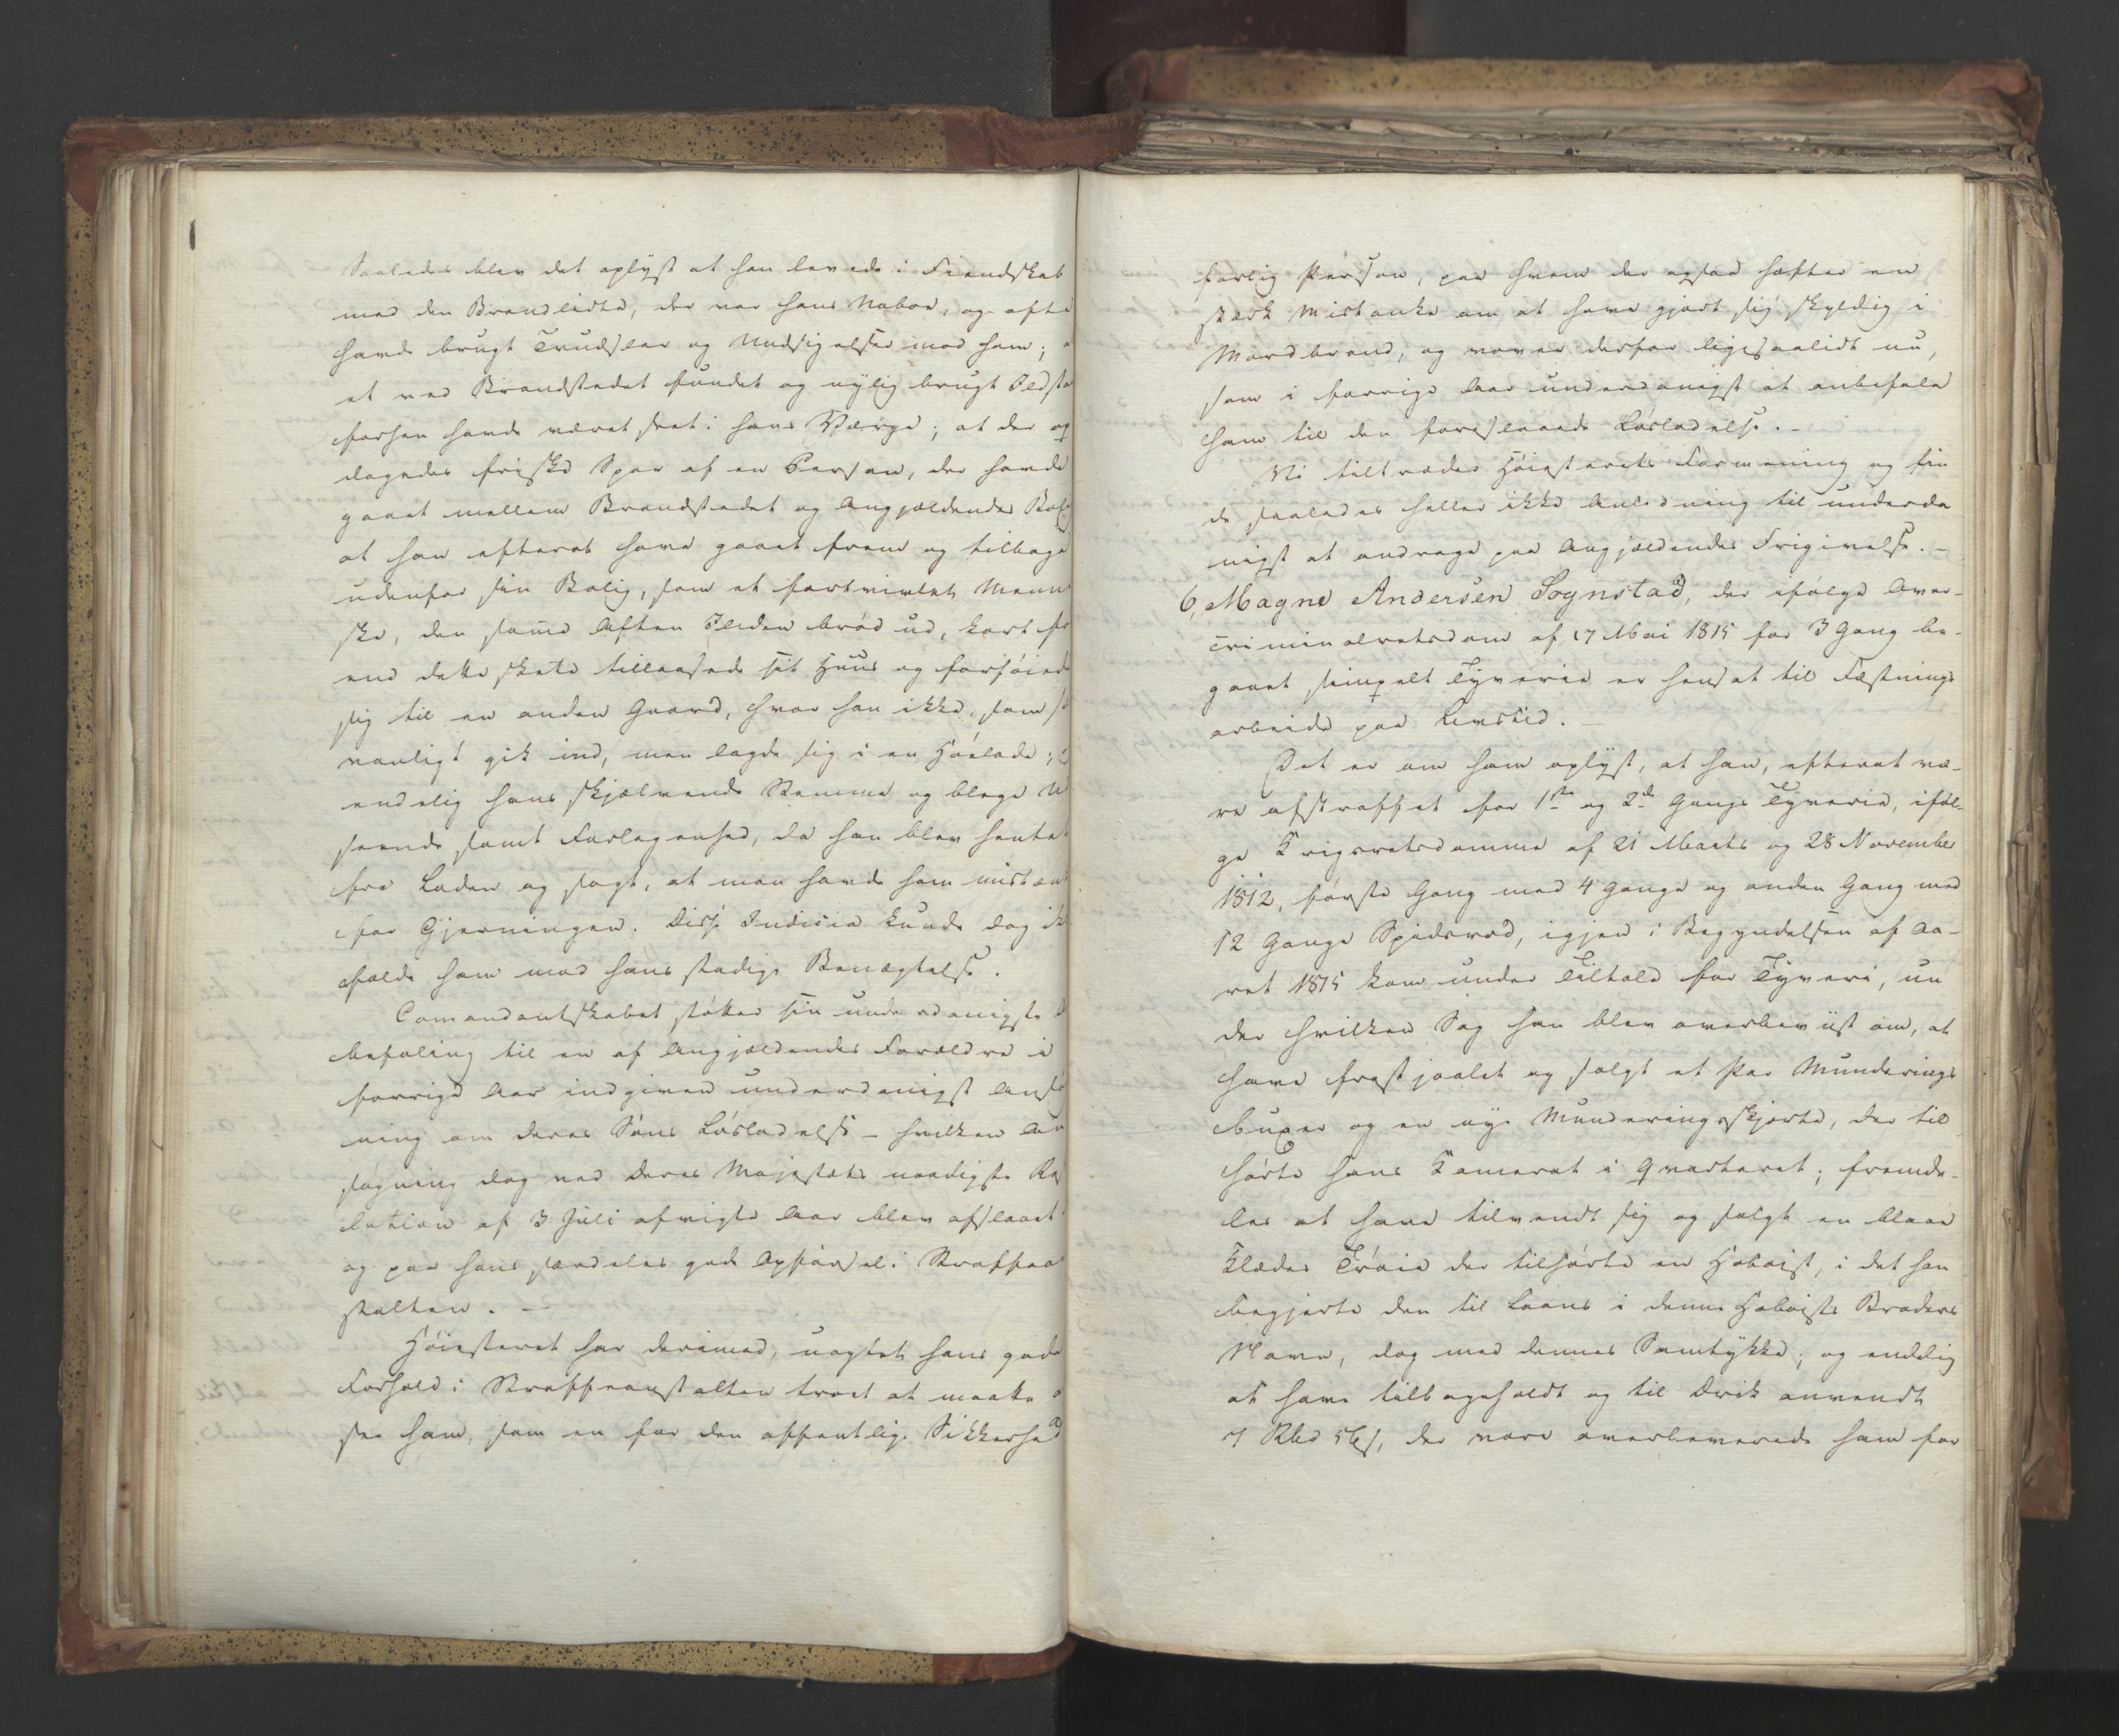 Saaledes blev det oplyst at han levede i Fiendskab
med den Brandlidte, der var hans Naboe, og ofte
havde brugt Trudsler og Undsigelser mod ham;
et ved Brandstedet fundet og nylig brugt Ildsta
forhen havde været seet i hans Værge; at der op
dagedes friske Spor af en Person, der havde
gaaet mellem Brandstedet og Angjældendes Bolig
at han efterat have gaaet frem og tilbage
udenfor sin Bolig, som et fortvivlet Menne
ske, den samme Aften Ilden brød ud, kort før
end dette skete tillaasede sit Huus og forføiede
sig til en anden Gaard, hvor han ikke, som sæd
vanligt gik ind, men lagde sig i en Høelade;
endelig hans skjælvende Stemme og blege U
seende samt Forlegenhed, da han blev hentet
fra Laden og sagt, at man havde ham mistænkt
for Gjerningen. Disse Indicia kunde dog ik
fælde ham mod hans stadige Benægtelse.
Comandantskabet støtter sin underdanigste
befaling til en af Angjældendes Forældre i
forrige Aar indgiven underdanigst Ansø
ning om deres Søns Løsladelse – hvilken An
søgning dog ved Deres Majestæts naadigste Res
lution af 3 Juli afvigte Aar blev afslaaet
og paa hans særdeles gode Opførsel i Straffean
stalten. –
Høiesteret har derimod, uagtet hans gode
Forhold i Straffeanstalten troet at maatte
see ham, som en for den offentlige Sikkerhed
farlig Person, paa hvem der ogsaa hæfter en
stærk Mistanke om at have gjort sig skyldig i
Mordbrand, og vover derfor ligesaalidt nu,
som i forrige Aar underdanigst at anbefale
ham til den foreslaaede Løsladelse. –
Vi tiltræder Høiesterets Formening og fin
de saaledes heller ikke Anledning til underda
nigst at andrage paa Angjældendes Frigivelse. –
6, Magne Andersen Sognstad, der ifølge Over-
criminalretsdom af 17 Mai 1815 for 3 Gang be-
gaaet simpelt Tyverie er hensat til Fæstnings
arbeide paa Livstid. –
Det er om ham oplyst, at han, efterat væ-
re afstraffet for 1ste og 2d Gangs Tyverie, iføl-
ge Krigsretsdomme af 21 Marts og 28 November
1812, første Gang med 4 Gange og anden Gang med
12 Gange Spidsrod, igjen i Begyndelsen af Aa-
ret 1815 kom under Tiltale for Tyveri, un
der hvilken Sag han blev overbeviist om, at
have frastjaalet og solgt et Par Munderings
buxer og en nye Munderingsskjorte, der til
hørte hans Kamerat i Qvarteret; fremde-
les at have tilvendt sig og solgt en blaae
Klædes Trøie der tilhørte en Hoboist, i det han
begjerte den til Laans i denne Hoboists Broders
Navn, dog med dennes Samtykke; og endelig
at have tilbageholdt og til Drik anvendt
7 Rbd, der vare overleverede ham for